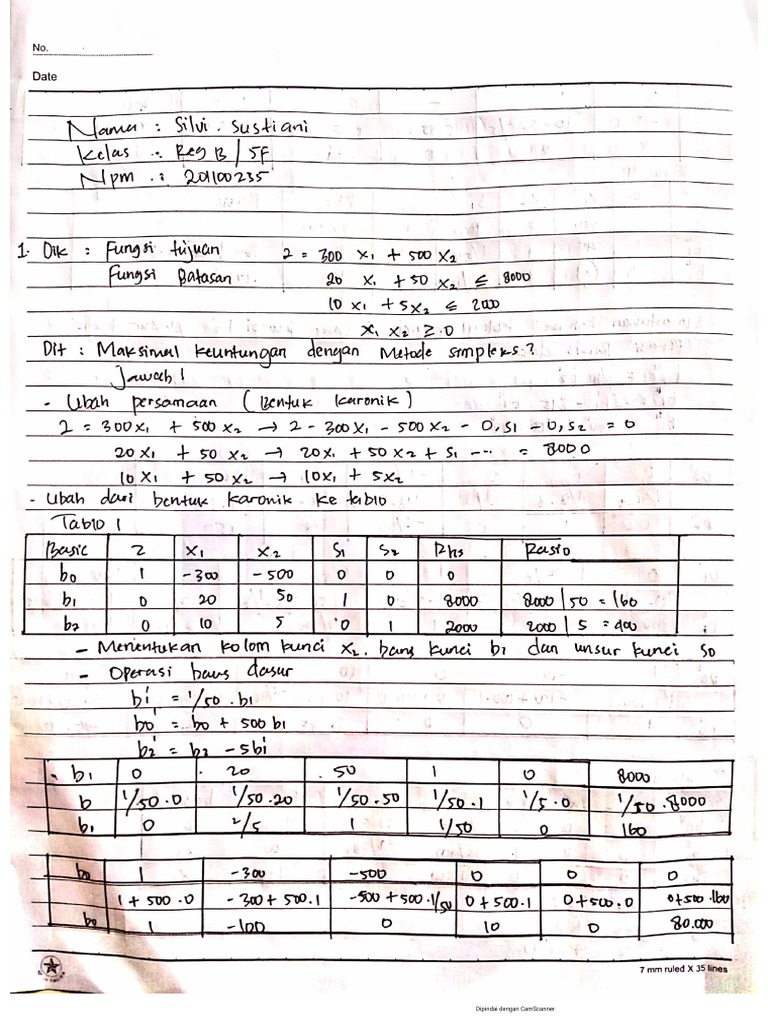 No.
Date
Nama : Silvi Sustiani
Kelas : Reg B / 5F
Npm : 20100235
1. Dik : Fungsi tujuan 2 = 300 x₁ + 500 x₂
Fungsi Batasan 20 x₁ + 50 x₂ ≤ 8000
10 x₁ + 5x₂ ≤ 2000
x₁ x₂ ≥ 0
Dit : Maksimal keuntungan dengan Metode simpleks ?
Jawab !
- Ubah persamaan (Bentuk karonik)
2 = 300x₁ + 500 x₂ → 2 - 300x₁ - 500x₂ - 0, s₁ - 0, s₂ = 0
20 x₁ + 50 x₂ → 20x₁ + 50 x₂ + s₁ --- = 8000
10 x₁ + 50 x₂ → 10x₁ + 5x₂
- Ubah dari bentuk karonik ke tablo
Tablo 1
Basic 2 x₁ x₂ S₁ S₂ Rhs Rasio
b₀ 1 -300 -500 0 0 0
b₁ 0 20 50 1 0 8000 8000 / 50 = 160
b₂ 0 10 5 0 1 2000 2000 / 5 = 400
- Menentukan kolom kunci x₂. baris kunci b₁ dan unsur kunci 50
- Operasi baris dasar
b₁' = 1/50 . b₁
b₀' = b₀ + 500 b₁
b₂' = b₂ - 5b₁'
b₁ 0 20 50 1 0 8000
b 1/50 . 0 1/50 . 20 1/50 . 50 1/50 . 1 1/5 . 0 1/50 . 8000
b₁ 0 2/5 1 1/50 0 160
b₀ 1 -300 -500 0 0 0
1 + 500 . 0 -300 + 500 . 1 -500 + 500 . 1/50 0 + 500 . 1 0 + 500 . 0 0 + 500 . 160
b₀ 1 -100 0 10 0 80.000
7 mm ruled X 35 lines
Dipindai dengan CamScanner